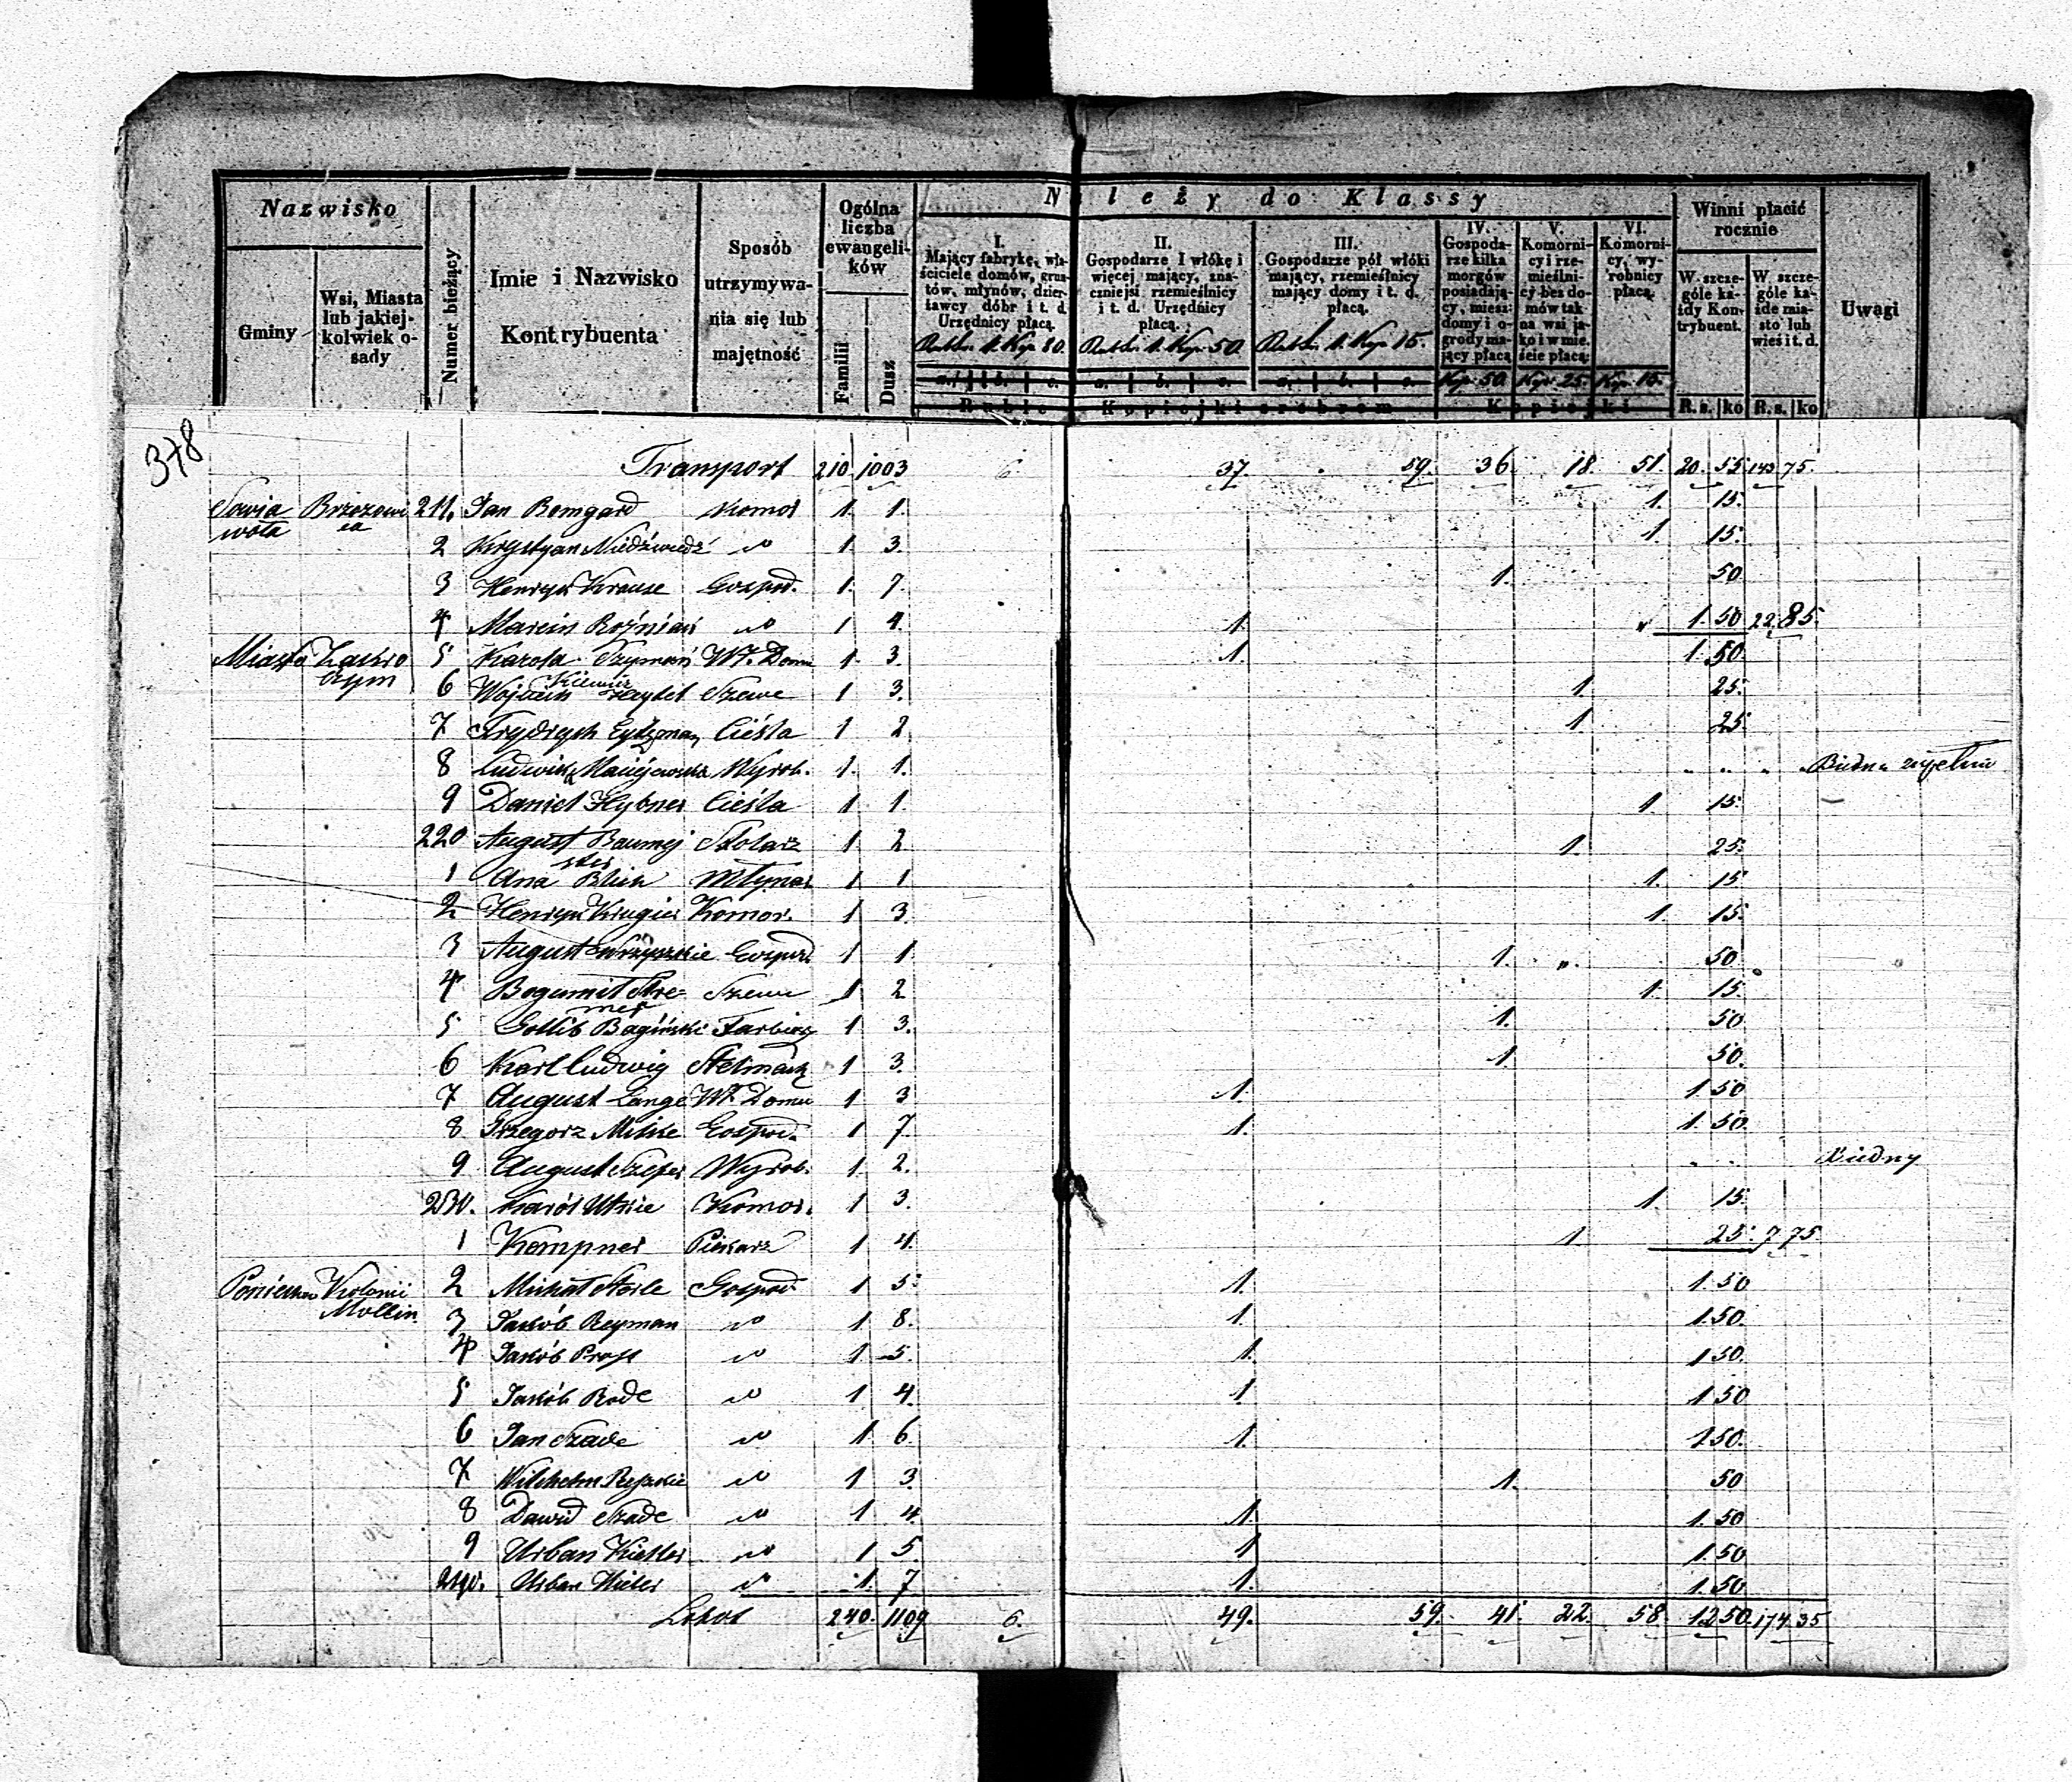 378
Nazwisko
Gminy
Wsi, Miasta lub jakiejkolwiek osady
Numer bieżący
Imie i Nazwisko Kontrybuenta
Sposób utrzymywania się lub majętność
Ogólna liczba ewangelików
Familii
Dusz
Należy do Klassy
I. Mający fabrykę, właściciele domów, gruntów, młynów, dzierżawcy dóbr i t. d. Urzędnicy płacą. Rubli 1. Kop 80.
II. Gospodarze I włókę i więcej mający, znaczniejsi rzemieślnicy i t. d. Urzędnicy płacą. Rubli 1. Kop 50
III. Gospodarze pół włóki mający, rzemieślnicy mający domy i t. d. płacą. Rubli 1. Kop 15.
IV. Gospodarze kilka morgów posiadający, mieszdomy i ogrody mający płacą Kop. 50
V. Komornicy i rzemieślnicy bez domów tak na wsi jako i w mieście płacą: Kop. 25.
VI. Komornicy, wyrobnicy płacą. Kop. 15.
a. b. c. a. b. c. a. b. c.
Ruble Kopiejki srebrem Kopiejki
Winni płacić rocznie
W szczególe każdy Kontrybuent.
W szczególe każde miasto lub wieś i t. d.
R. s. ko R. s. ko
Uwagi
Transport 210. 1003 6. 37. 59. 36. 18. 51. 20. 55. 143 75.
wola Brzozowica 211. Jan Bomgard Komor 1. 1. 1. 15.
2 Krystyan Niedźwiedź do 1. 3. 1. 15.
3 Henryk Krause Gospod. 1. 7. 1. 50
4 Marcin do 1 4. 1. 1. 50 22. 85.
Miasto Zakroczym 5 Karola Szymań Wł. Domu 1. 3. 1. 1. 50.
kiewicz
6 Wojciech Szewc 1 3. 1. 25.
7 Frydrych Cieśla 1 2 1. 25.
8 Ludwika Maciejewska Wyrob. 1. 1. Biedna zupełnie
9 Daniel Hybner Cieśla 1. 1. 1. 15.
220 August Baumej Stolarz 1. 2 1. 25.
ster
1 Ana Blich Młynar 1 1 1. 15
2 Henryk Krugier Komor. 1 3. 1. 15.
3 August Gospod. 1 1. 1. 50
4 Bogumił Szewc 1 2 1. 15.
5 Gotlib Bagiński Farbiarz 1 3. 1. 50
6 Karl Ludwig Stelmach 1 3. 1. 50.
7 August Lange Wł. Domu 1 3 1. 1. 50
8 Grzegorz Milke Gospod. 1 7. 1. 1. 50.
9 August Szefer Wyrob. 1. 2. Biedny
230. Karól Utkie Komor. 1 3. 1. 15.
1 Kempner Piekarz 1 4. 1. 25. 7 75
Kolonii Mollin 2 Michał Gospod 1 5. 1. 1. 50
3 Jakób Reyman do 1 8. 1. 1. 50.
4 Jakób Prost do 1 5. 1. 1 50.
5 Jakób Rode do 1 4. 1. 1. 50
6 Jan Szade do 1 6. 1. 1 50.
7 Wilchelm do 1 3. 1. 50
8 Dawid Szade do 1 4. 1. 1. 50
9 Urban do 1 5. 1 1. 50
240. Urban do 1. 7 1. 1. 50
240. 1109 6. 49. 59. 41. 22. 58. 12 50. 174. 35